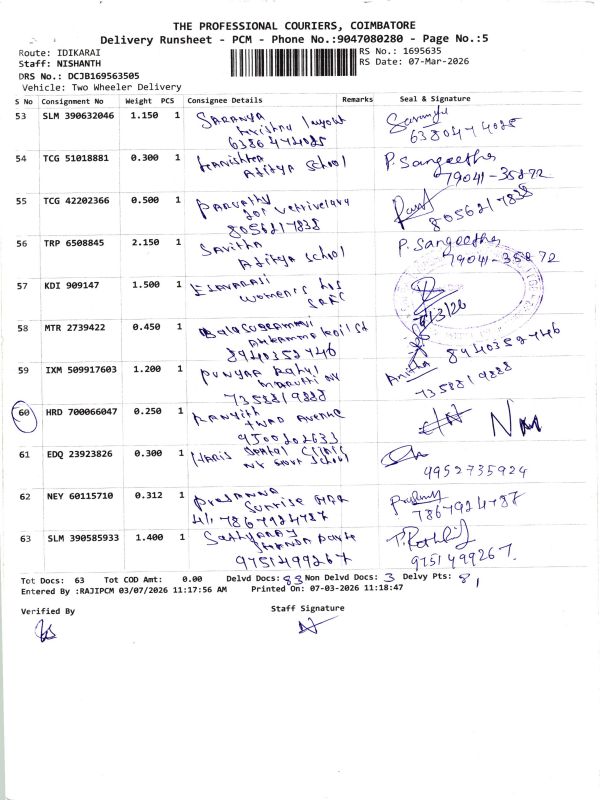 THE PROFESSIONAL COURIERS, COIMBATORE
Delivery Runsheet - PCM - Phone No.:9047080280 - Page No.:5
Route: IDIKARAI
RS No.: 1695635
Staff: NISHANTH
RS Date: 07-Mar-2026
DRS No.: DCJB169563505
Vehicle: Two Wheeler Delivery
S No Consignment No Weight PCS Consignee Details Remarks Seal & Signature
53 SLM 390632046 1.150 1 Saranya
Krishna layout
6380474025 6380474025
54 TCG 51018881 0.300 1 Hanishka P. Sangeetha
Aditya School 79041-35872
55 TCG 42202366 0.500 1 Parvathy
8056217838 8056217838
56 TRP 6508845 2.150 1 Savitha P. Sangeetha
Aditya School 79041-35872
57 KDI 909147 1.500 1 Elavarasi
Women's
58 MTR 2739422 0.450 1
8940352746 8940352746
59 IXM 509917603 1.200 1 Anitha
Maruthi
7358819888 7358819888
60 HRD 700066047 0.250 1 Ranjith
TWAD Avenue
9500202633
61 EDQ 23923826 0.300 1 Haris Dental Clinic
School 9952735924
62 NEY 60115710 0.312 1 Prasanna
Sunrise
7867924787 7867924787
63 SLM 390585933 1.400 1 Sathyaraj
9751499267 9751499267
Tot Docs: 63 Tot COD Amt: 0.00 Delvd Docs: 83 Non Delvd Docs: 3 Delvy Pts: 81
Entered By :RAJIPCM 03/07/2026 11:17:56 AM Printed On: 07-03-2026 11:18:47
Verified By Staff Signature